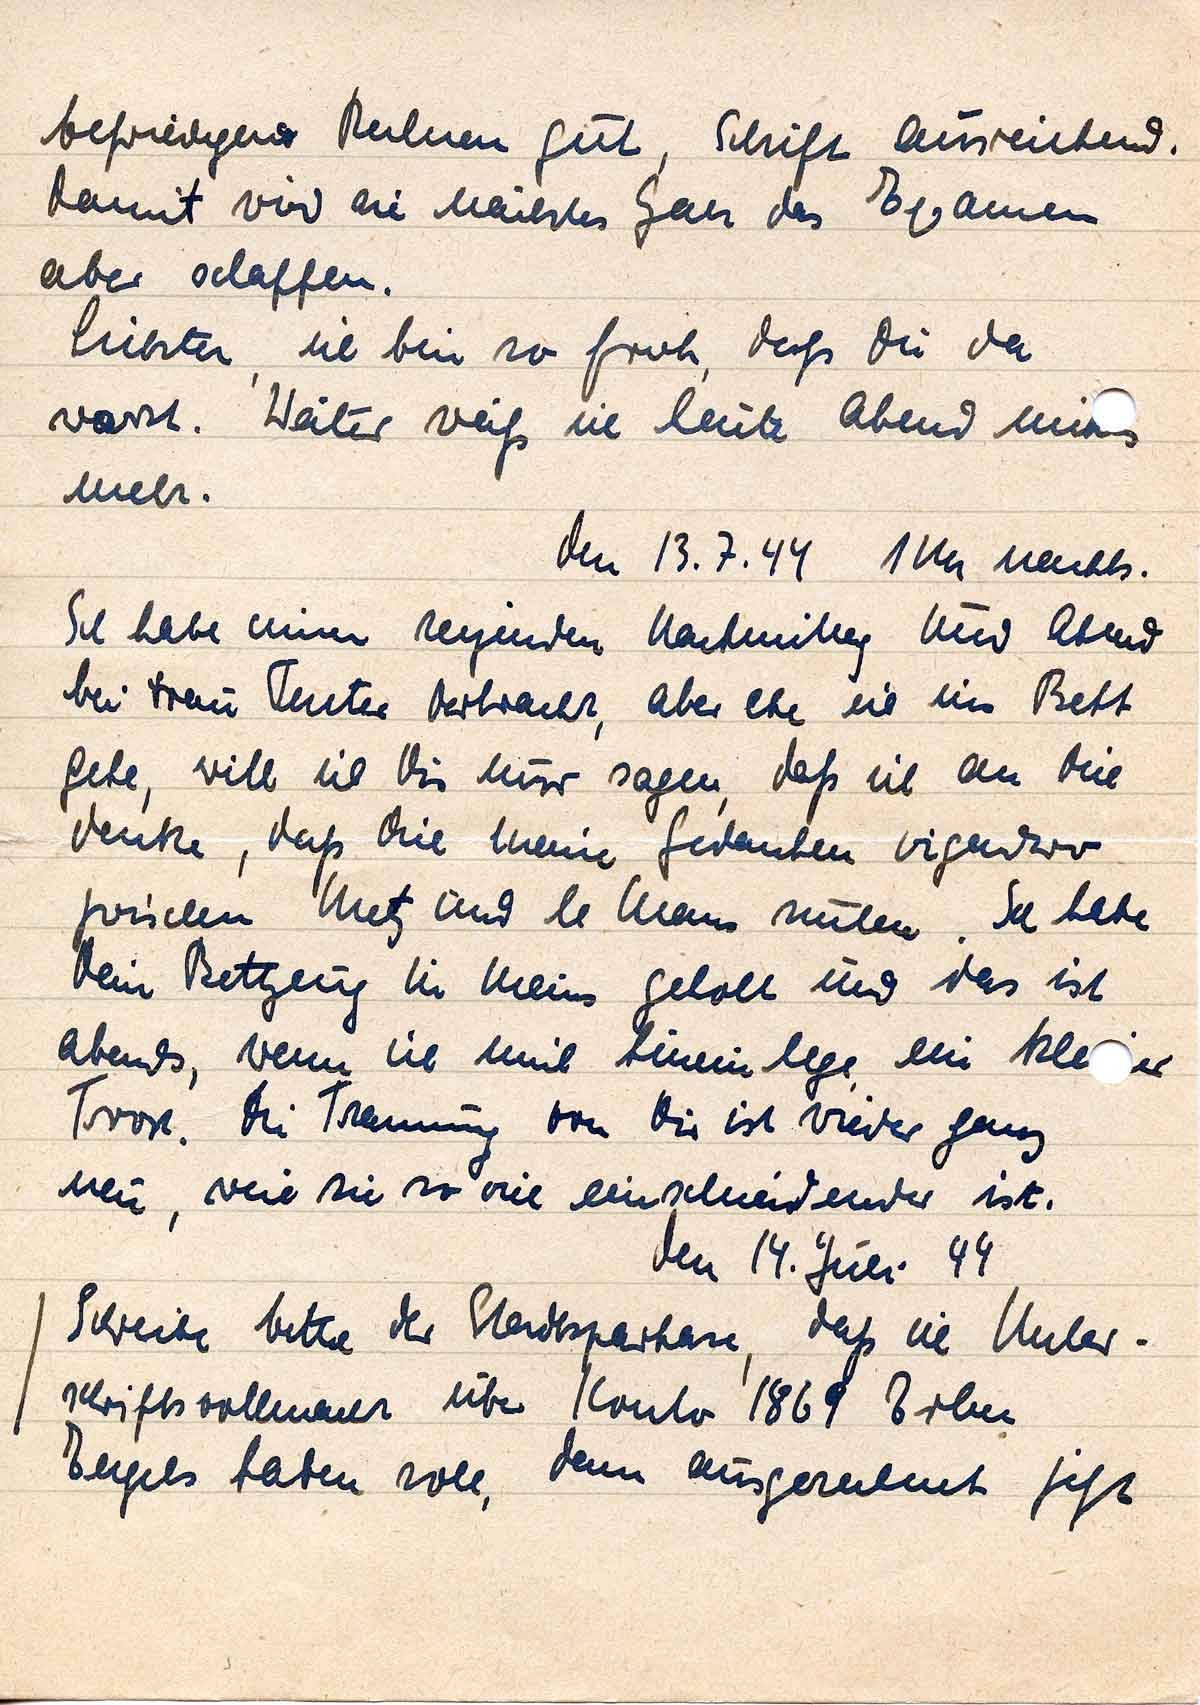 befriedigend Rechnen gut, Schrift ausreichend.
Damit wird sie nächstes Jahr das Examen
aber schaffen.
Liebster, ich bin so froh, daß Du da
warst. Weiter weiß ich heute Abend nichts
mehr.
den 13.7.44 1 Uhr nachts.
Ich habe einen reizenden Nachmittag und Abend
bei Frau verbracht, aber ehe ich ins Bett
gehe, will ich Dir nur sagen, daß ich an Dich
denke, daß Dich meine Gedanken irgendwo
zwischen Metz und le Mans suchen. Ich habe
Dein Bettzeug in meins geholt und das ist
abends, wenn ich mich hineinlege, ein kleiner
Trost. Die Trennung von Dir ist wieder ganz
neu, weil sie so viel einschneidender ist.
den 14. Juli 44
Schreibe bitte der Stadtsparkasse, daß ich Unter-
schriftsvollmacht über Konto 1869 Erben
Engels haben soll, denn ausgerechnet jetzt